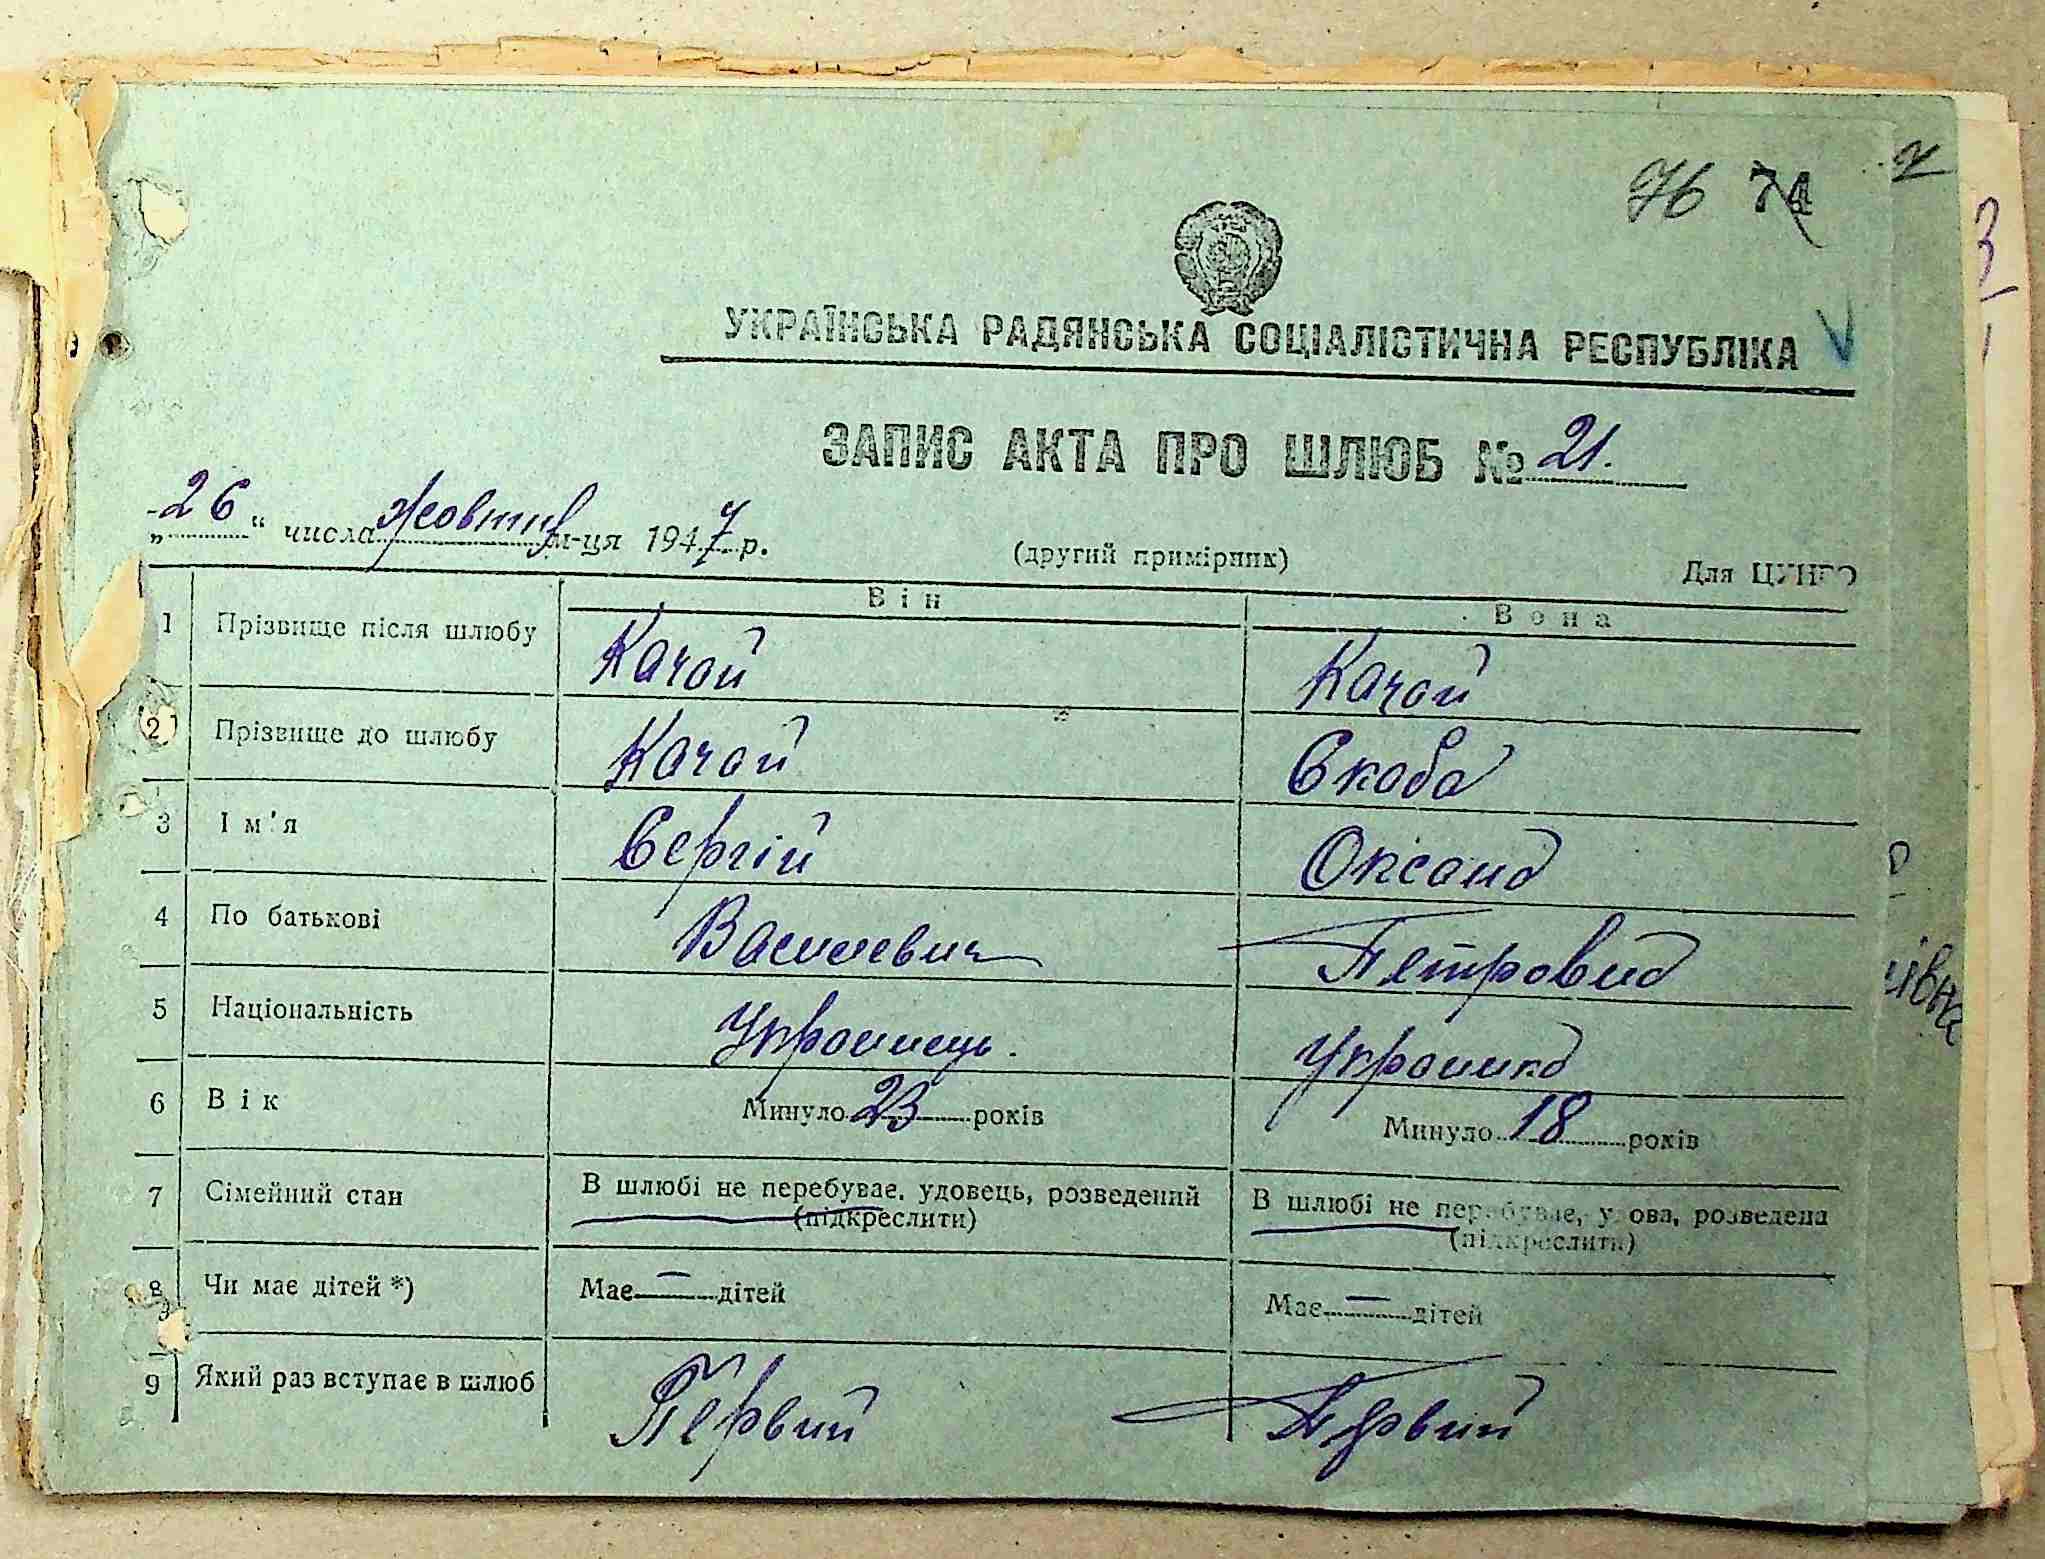 76 74 2
3
УКРАЇНСЬКА РАДЯНСЬКА СОЦІАЛІСТИЧНА РЕСПУБЛІКА
ЗАПИС АКТА ПРО ШЛЮБ № 21.
„26“ числа жовтня м-ця 1947 р.
(другий примірник)
Для
Він Вона
1 Прізвище після шлюбу Качай Качай
2 Прізвище до шлюбу Качай Скоба
3 Ім'я Сергій Оксана
4 По батькові Василевич Петровна
5 Національність Украинець. Украинка
6 Вік Минуло 23 років Минуло 18 років
7 Сімейний стан В шлюбі не перебуває, удовець, розведений В шлюбі не перебуває, удова, розведена
(підкреслити) (підкреслити)
8 Чи має дітей *) Має — дітей Має — дітей
9 Який раз вступає в шлюб Первий Первий